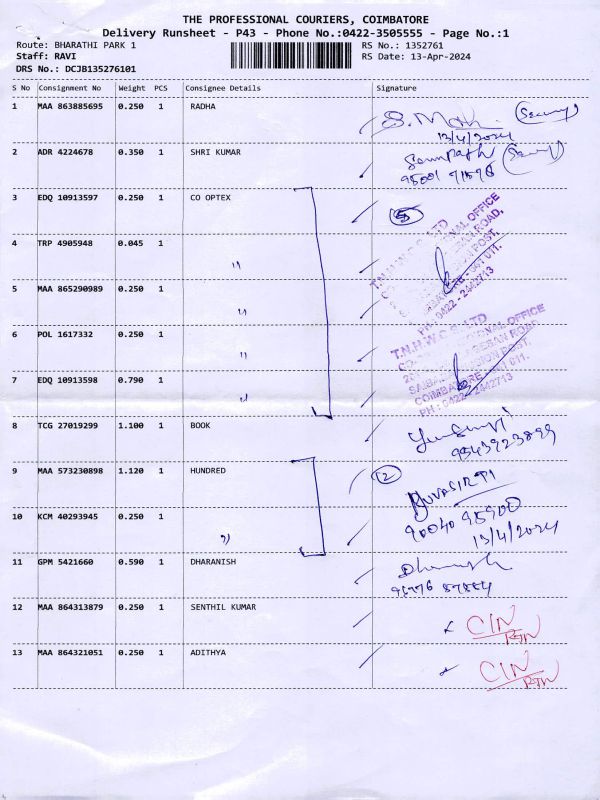 THE PROFESSIONAL COURIERS, COIMBATORE
Delivery Runsheet - P43 - Phone No.:0422-3505555 - Page No.:1
Route: BHARATHI PARK 1 RS No.: 1352761
Staff: RAVI RS Date: 13-Apr-2024
DRS No.: DCJB135276101
S No Consignment No Weight PCS Consignee Details Signature
1 MAA 863885695 0.250 1 RADHA
13/4/2024
2 ADR 4224678 0.350 1 SHRI KUMAR Sampath
3 EDQ 10913597 0.250 1 CO OPTEX 5
4 TRP 4905948 0.045 1 "
5 MAA 865290989 0.250 1 "
PH: 0422 - 2442713
6 POL 1617332 0.250 1 "
T.N.H.W.C.S LTD
7 EDQ 10913598 0.790 1 "
COIMBATORE - 641 011.
PH : 0422 - 2442713
8 TCG 27019299 1.100 1 BOOK
9543923899
9 MAA 573230898 1.120 1 HUNDRED 2
10 KCM 40293945 0.250 1 "
90040 95900
13/4/2024
11 GPM 5421660 0.590 1 DHARANISH Dhanush
12 MAA 864313879 0.250 1 SENTHIL KUMAR CIN
RTN
13 MAA 864321051 0.250 1 ADITHYA CIN
RTN